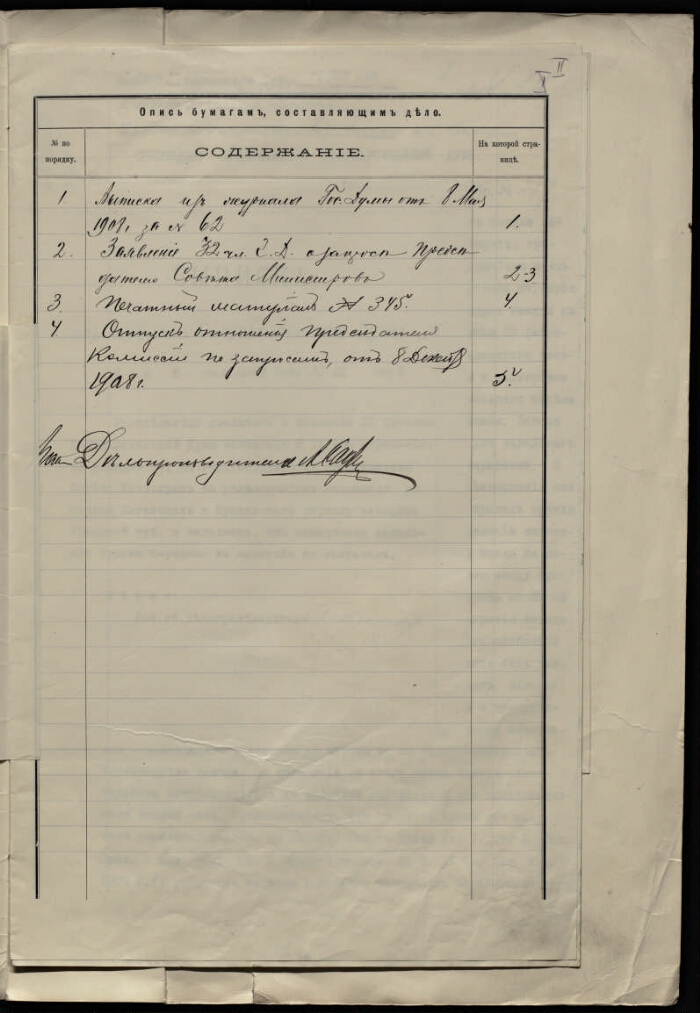 II
Опись бумагамъ, составляющимъ дѣло.
№ по порядку.
СОДЕРЖАНІЕ.
На которой страницѣ.
1 Выписка изъ журнала Гос. Думы отъ 8 Мая
1908 г. за № 62 1.
2. Заявленіе 32 чл. Г. Д. о запросѣ Предсѣ
дателю Совѣта Министровъ 2-3
3. Печатный матеріалъ № 345. 4.
4. Отпускъ отношенія Предсѣдателя
Комиссіи по запросамъ, отъ 8 Декабр
1908 г. 5.
Дѣлопроизводителя